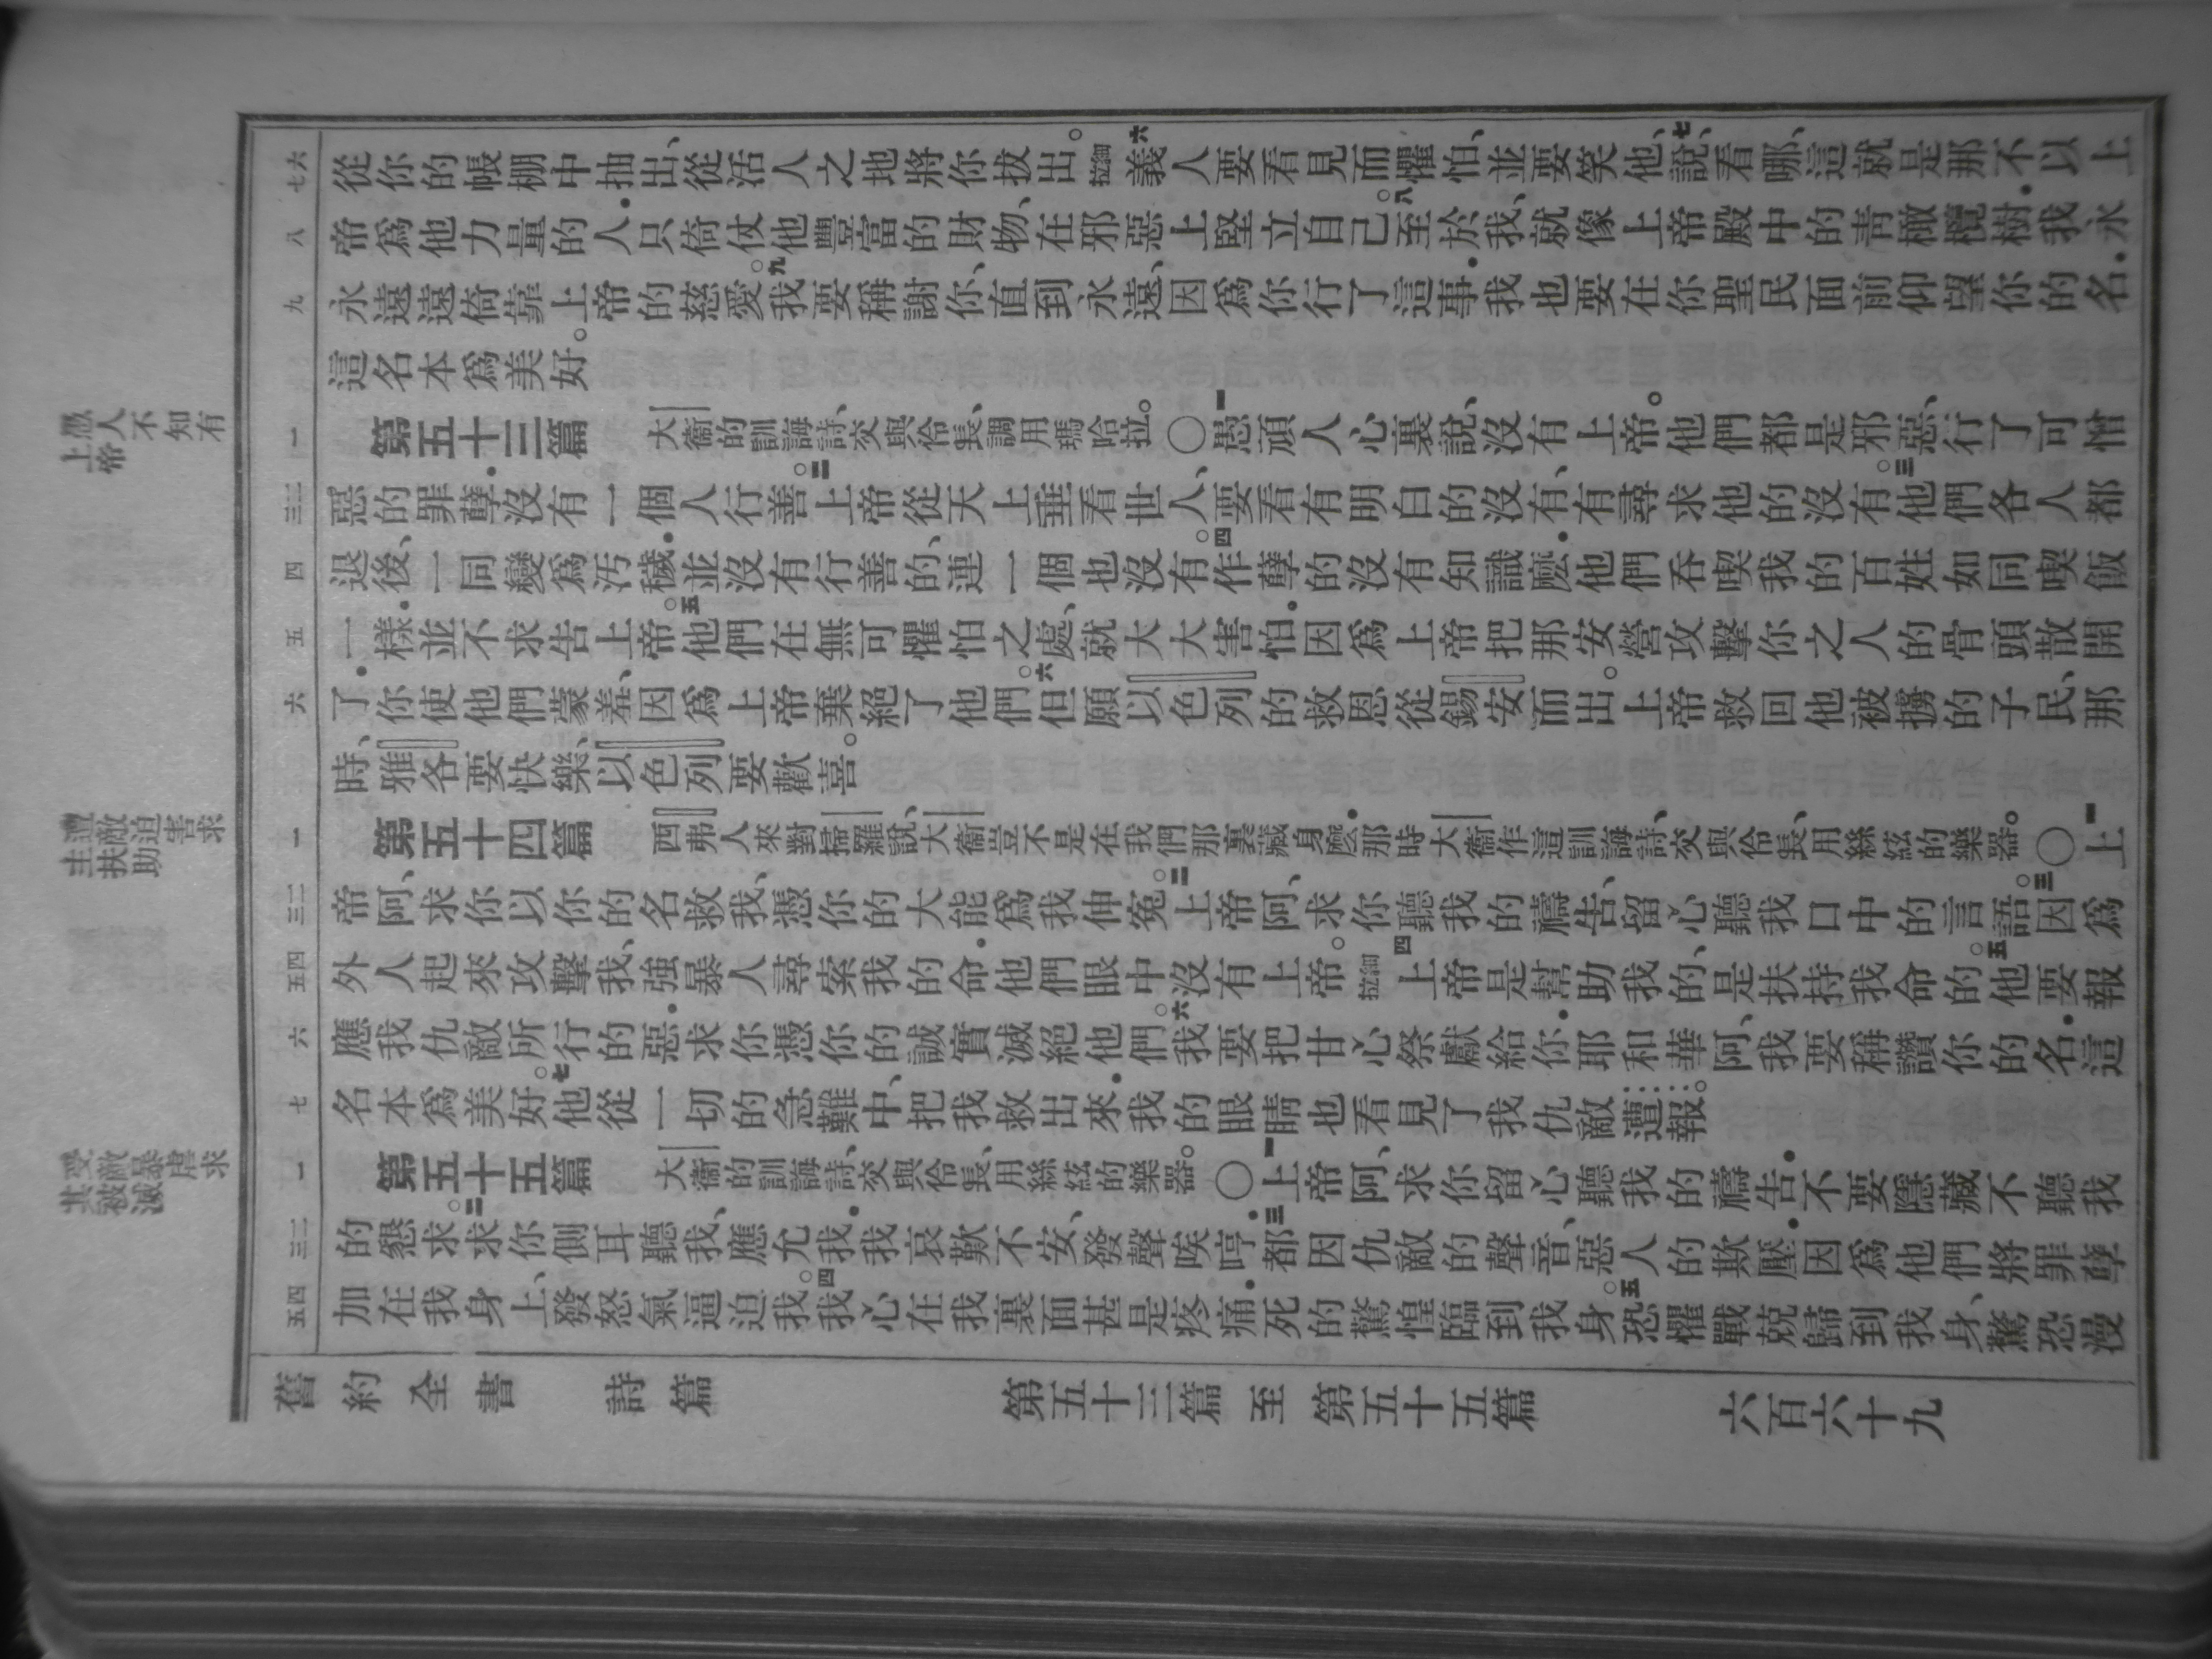 六 七
從你的帳棚中抽出、從活人之地將你拔出。細拉六義人要看見而懼怕、並要笑他、七說、看哪、這就是那不以上
八
帝爲他力量的人．只倚仗他豐富的財物、在邪惡上堅立自己。八至於我、就像上帝殿中的青橄欖樹．我永
九
永遠遠倚靠上帝的慈愛。九我要稱謝你、直到永遠、因爲你行了這事．我也要在你聖民面前仰望你的名．
這名本爲美好。
愚人不知有
上帝
一
第五十三篇 大衞的訓誨詩、交與伶長、調用瑪哈拉。○一愚頑人心裏說、沒有上帝。他們都是邪惡、行了可憎
二 三
惡的罪孽．沒有一個人行善。二上帝從天上垂看世人、要看有明白的沒有、有尋求他的沒有。三他們各人都
四
退後、一同變爲汚穢．並沒有行善的、連一個也沒有。四作孽的沒有知識麽．他們吞喫我的百姓如同喫飯
五
一樣．並不求告上帝。五他們在無可懼怕之處、就大大害怕．因爲上帝把那安營攻擊你之人的骨頭散開
六
了．你使他們蒙羞、因爲上帝棄絕了他們。六但願以色列的救恩從錫安而出。上帝救回他被擄的子民、那
時、雅各要快樂、以色列要歡喜。
遭敵迫害求
主扶助
一
第五十四篇 西弗人來對掃羅說、大衞豈不是在我們那裏藏身麽．那時大衞作這訓誨詩、交與伶長、用絲絃的樂器。○一上
二 三
帝阿、求你以你的名救我、憑你的大能爲我伸冤。二上帝阿、求你聽我的禱告、留心聽我口中的言語。三因爲
四 五
外人起來攻擊我、強暴人尋索我的命．他們眼中沒有上帝。細拉四上帝是幫助我的、是扶持我命的。五他要報
六
應我仇敵所行的惡．求你憑你的誠實滅絕他們。六我要把甘心祭獻給你．耶和華阿、我要稱讚你的名．這
七
名本爲美好。七他從一切的急難中、把我救出來．我的眼睛也看見了我仇敵遭報。
受敵暴虐求
其被滅
一
第五十五篇 大衞的訓誨詩、交與伶長、用絲絃的樂器。○一上帝阿、求你留心聽我的禱告．不要隱藏不聽我
二 三
的懇求。二求你側耳聽我、應允我．我哀歎不安、發聲唉哼．三都因仇敵的聲音、惡人的欺壓．因爲他們將罪孽
四 五
加在我身上、發怒氣逼迫我。四我心在我裏面甚是疼痛．死的驚惶臨到我身。五恐懼戰兢歸到我身、驚恐漫
舊約全書 詩篇 第五十三篇至第五十五篇 六百六十九